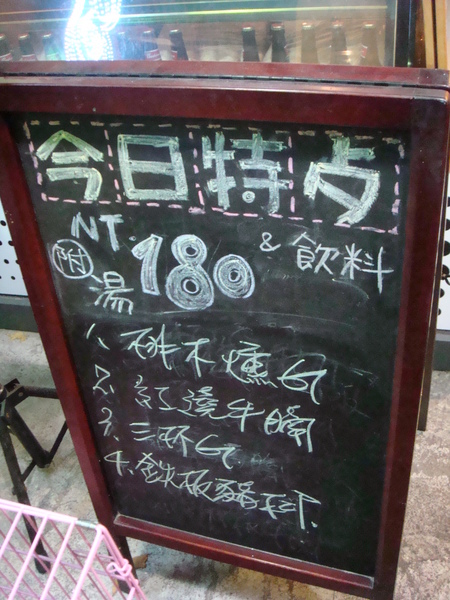 今日特占
NT.180 & 飲料
附湯
1、砵木燻G
2、紅燒牛腩
3、三杯G
4、鉄板豬排